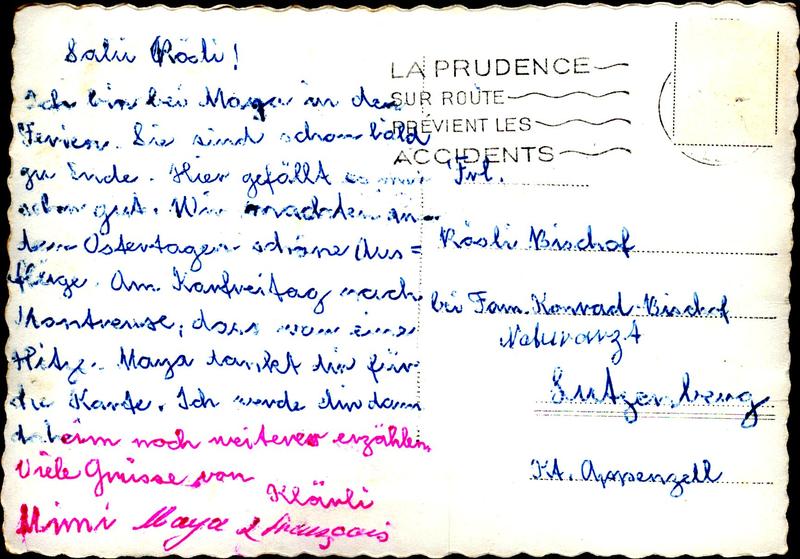 Salü Rösli!
Ich bin bei Maya in den
Ferien. Sie sind schon bald
zu Ende. Hier gefällt es mir
sehr gut. Wir machten an
den Ostertagen schöne Aus=
flüge. Am Karfreitag nach
Montreux, dass war eine
Hitze. Maya danket dir für
die Karte. Ich werde dir dann
daheim noch weiteres erzählen.
Viele Grüsse von
Klärli
Mimi Maya & François
LA PRUDENCE
SUR ROUTE
PRÉVIENT LES
ACCIDENTS
Frl.
Rösli Bischof
bei Fam. Konrad-Bischof
Naturarzt
Lutzenberg
Kt. Appenzell